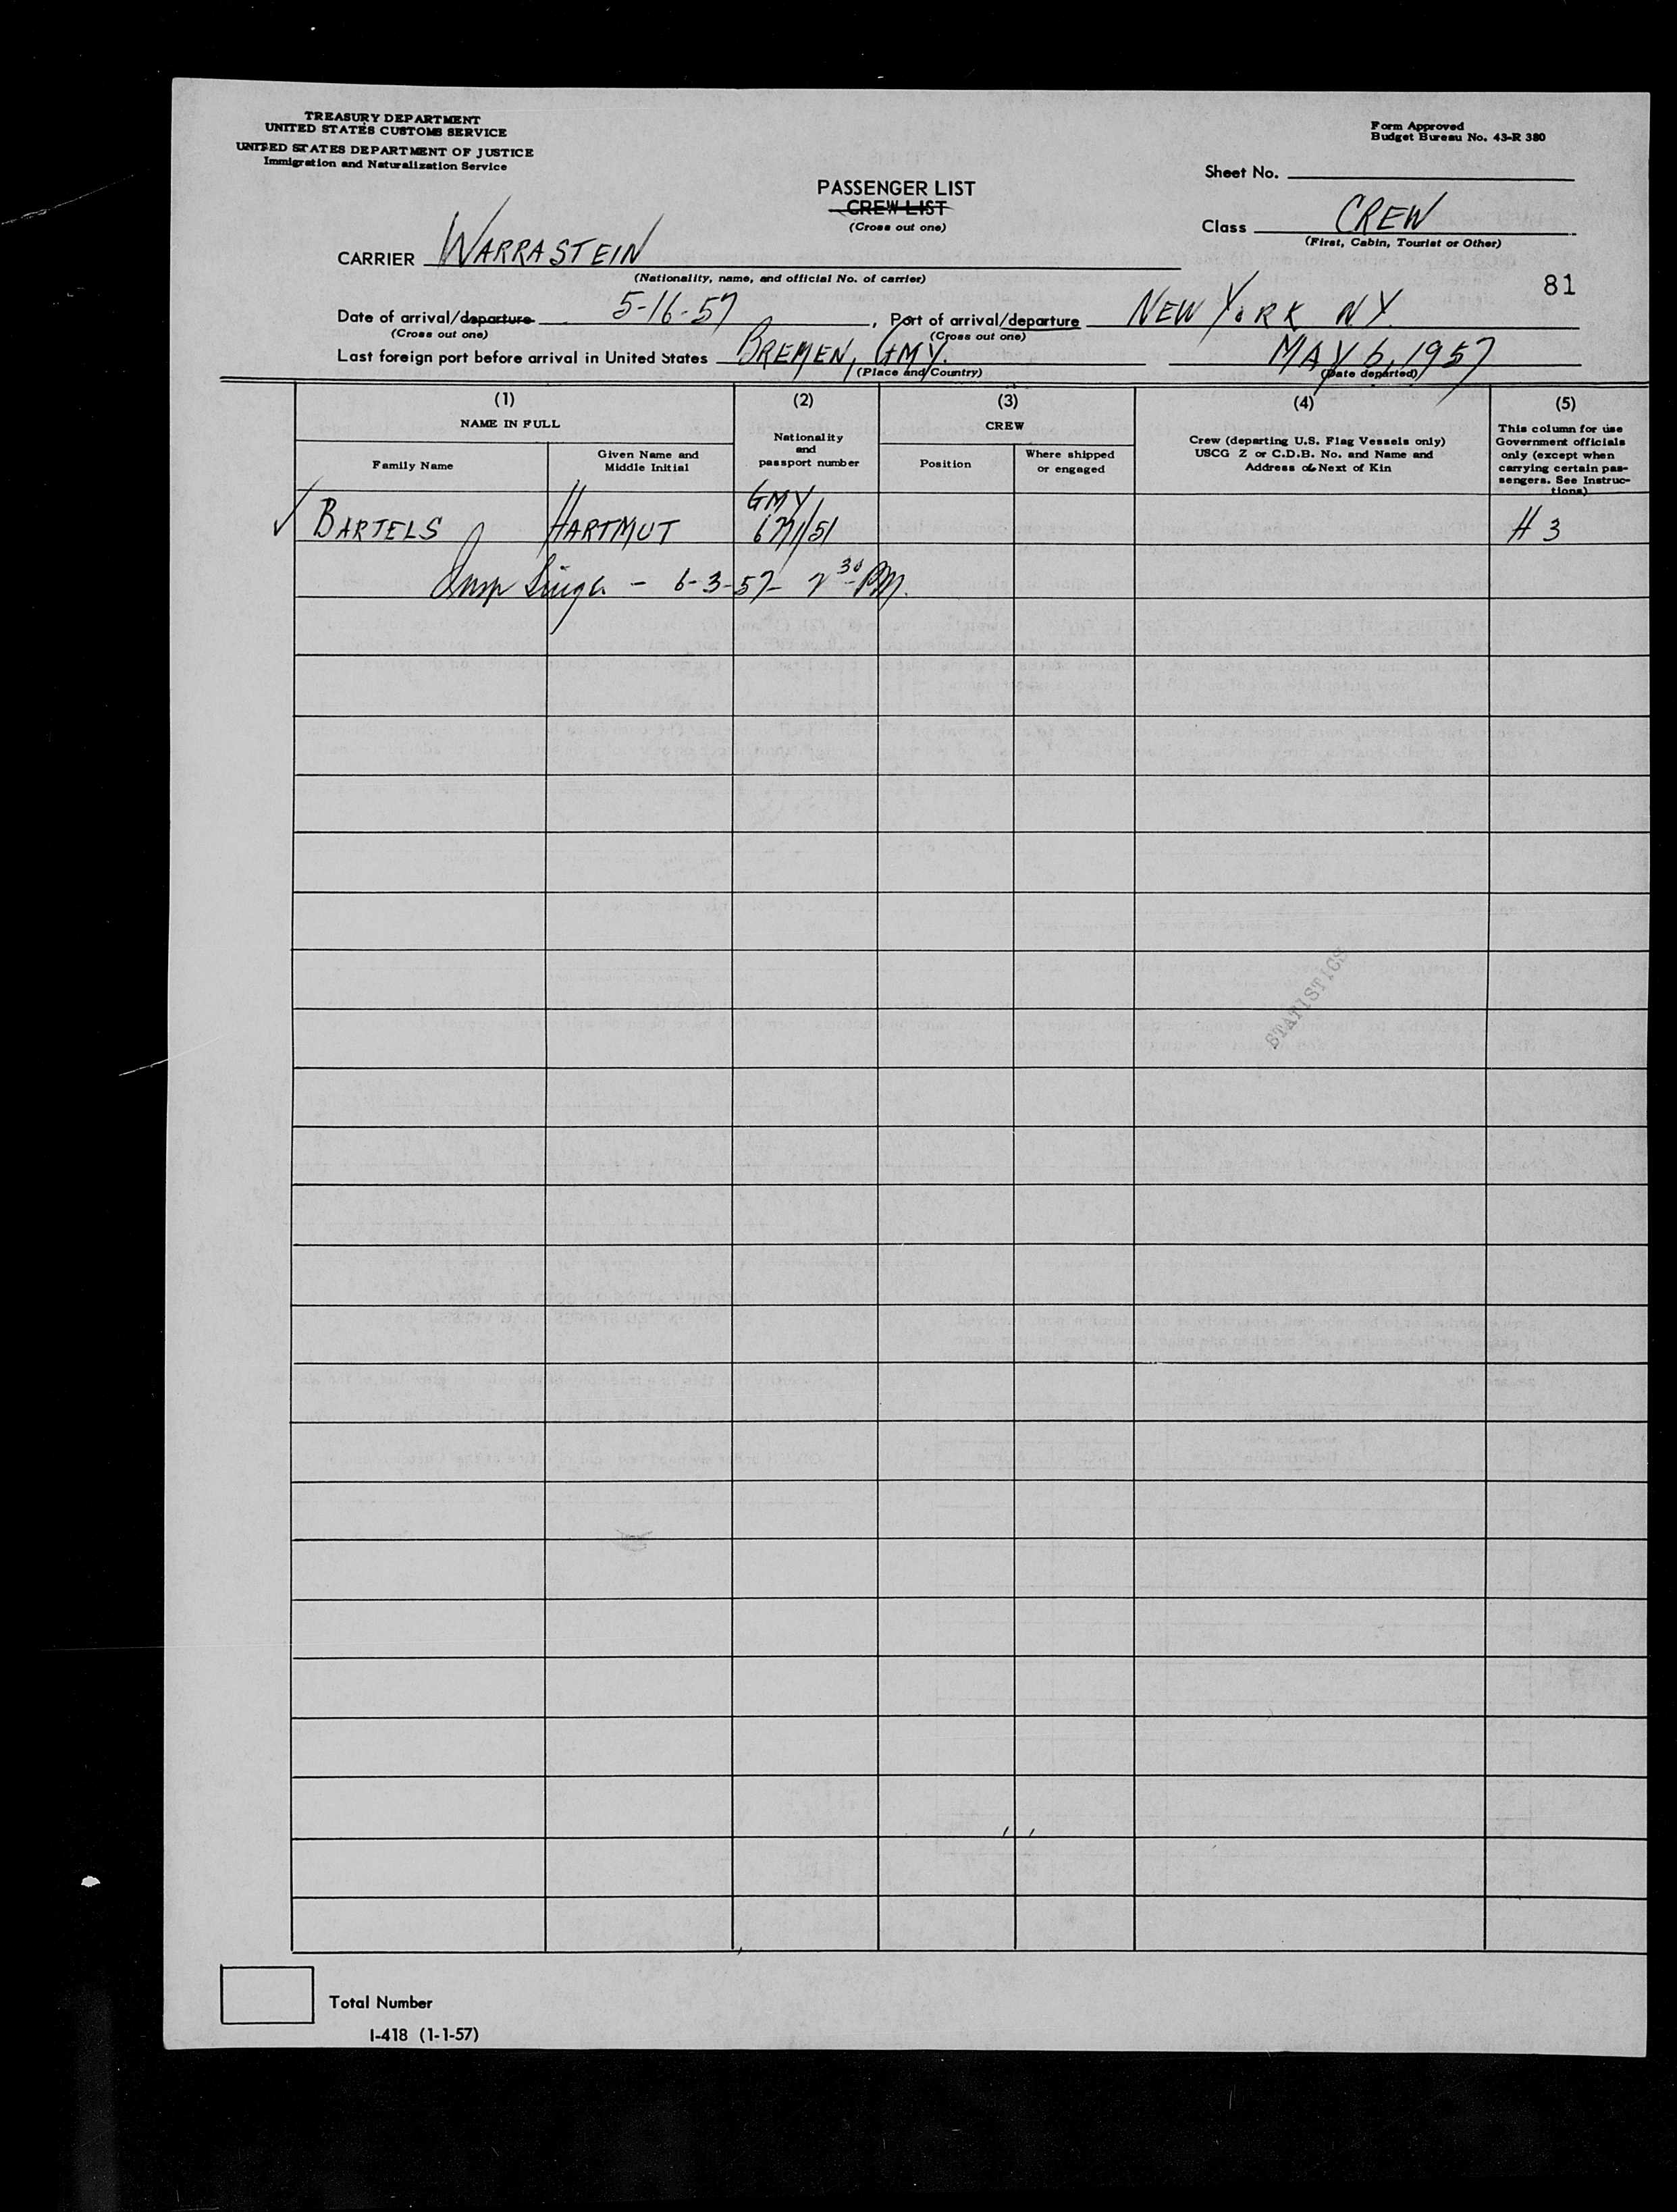 TREASURY DEPARTMENT
UNITED STATES CUSTOMS SERVICE
UNITED STATES DEPARTMENT OF JUSTICE
Immigration and Naturalization Service
Form Approved
Budget Bureau No. 43-R 380
Sheet No.
PASSENGER LIST
CREW LIST
(Cross out one)
Class CREW
(First, Cabin, Tourist or Other)
CARRIER WARRASTEIN
(Nationality, name, and official No. of carrier)
81
Date of arrival/departure 5-16-57, Port of arrival/departure NEW YORK NY.
(Cross out one) (Cross out one)
Last foreign port before arrival in United States BREMEN, GMY. MAY 6, 1957
(Place and Country) (Date departed)
(1) (2) (3) (4) (5)
NAME IN FULL
Family Name
Given Name and
Middle Initial
Nationality
and
passport number
CREW
Position
Where shipped
or engaged
Crew (departing U.S. Flag Vessels only)
USCG Z or C.D.B. No. and Name and
Address of Next of Kin
This column for use
Government officials
only (except when
carrying certain pas-
sengers. See Instruc-
tions)
GMY
✓ BARTELS HARTMUT 671/51 # 3
Insp - 6-3-57 - 2 30 PM.
STATISTICS
Total Number
I-418 (1-1-57)